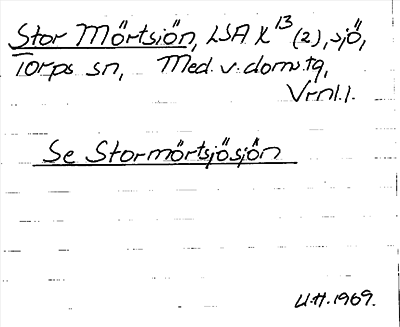 Stor Mörtsjön, LSA K 13 (2), sjö,
Torps sn, Med. v. doms.tg,
Vrnl. l.
Se Stormörtsjösjön
U.H. 1969.